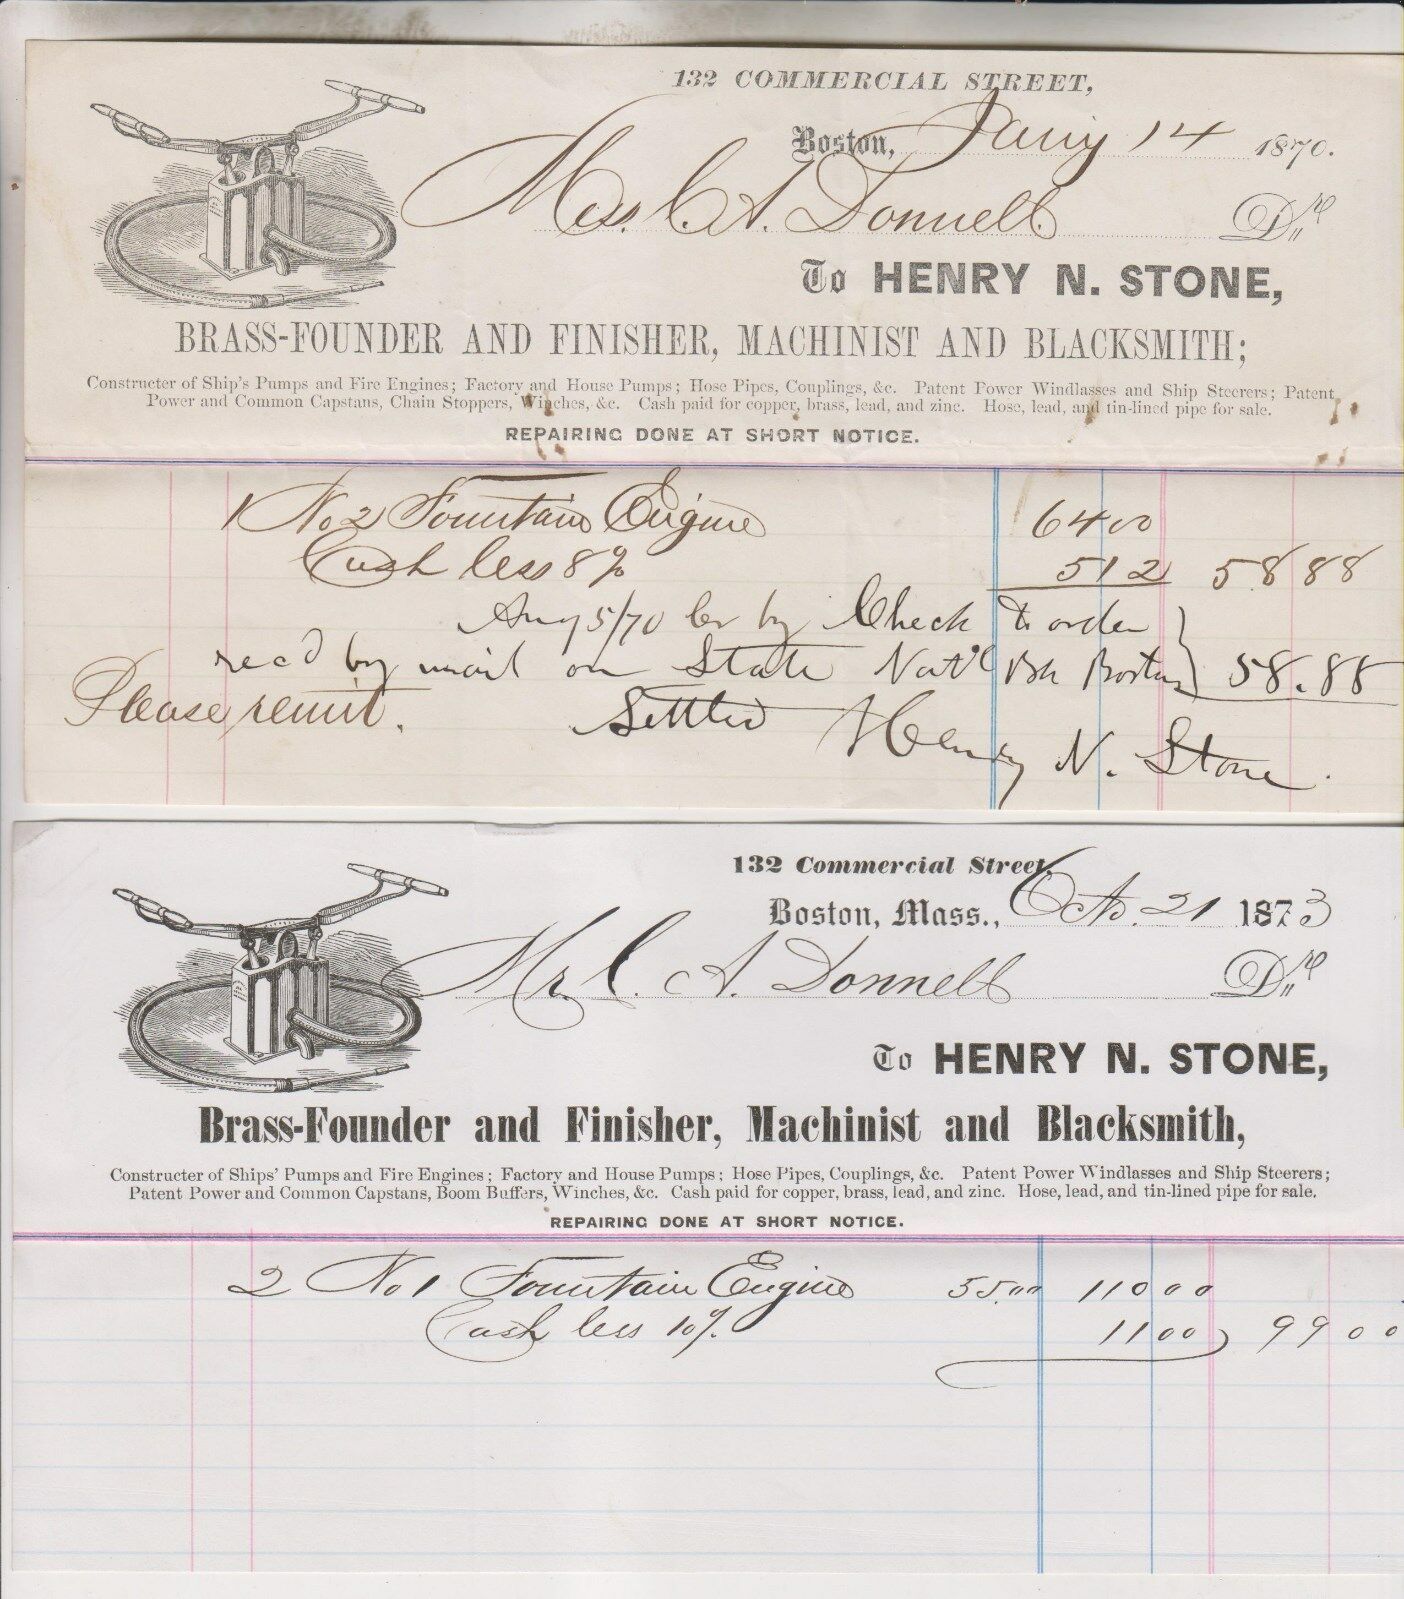 132 COMMERCIAL STREET,
Boston, Jany 14 1870.
Mess. C. A. Donnell Dr
To HENRY N. STONE,
BRASS-FOUNDER AND FINISHER, MACHINIST AND BLACKSMITH;
Constructer of Ship's Pumps and Fire Engines; Factory and House Pumps; Hose Pipes, Couplings, &c. Patent Power Windlasses and Ship Steerers; Patent
Power and Common Capstans, Chain Stoppers, Winches, &c. Cash paid for copper, brass, lead, and zinc. Hose, lead, and tin-lined pipe for sale.
REPAIRING DONE AT SHORT NOTICE.
1 No 2 Fountain Engine 64 00
Cash less 8% 5 12 58 88
Aug 5/70 Cr by Check to order
recd by mail on State Nat'l Bk Boston 58.88
Please remit. Settled Henry N. Stone
132 Commercial Street,
Boston, Mass., Octo. 21 1873
Mr. C. A. Donnell Dr
To HENRY N. STONE,
Brass-Founder and Finisher, Machinist and Blacksmith,
Constructer of Ships' Pumps and Fire Engines; Factory and House Pumps; Hose Pipes, Couplings, &c. Patent Power Windlasses and Ship Steerers;
Patent Power and Common Capstans, Boom Buffers, Winches, &c. Cash paid for copper, brass, lead, and zinc. Hose, lead, and tin-lined pipe for sale.
REPAIRING DONE AT SHORT NOTICE.
2 No 1 Fountain Engine 55.00 110 00
Cash less 10% 11 00 99 00